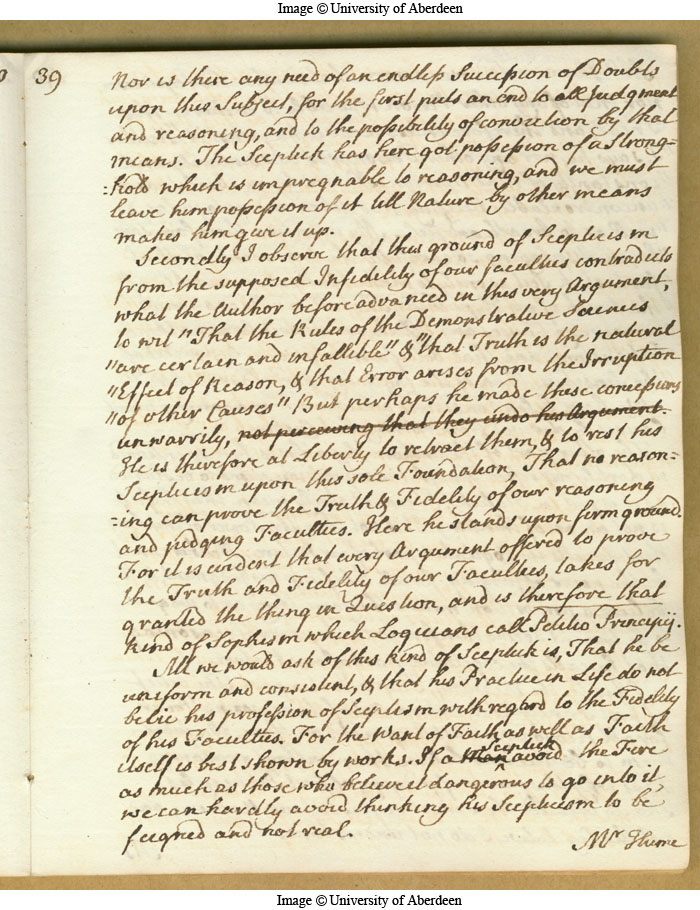 Image © University of Aberdeen
39
Nor is there any need of an endless Succession of Doubts
upon this Subject, for the first puts an end to all Judgment
and reasoning, and to the possibility of conviction by that
means. The Sceptick has here got possession of a Strong-
:hold which is impregnable to reasoning, and we must
leave him possession of it till Nature by other means
makes him give it up.
Secondly I observe that this ground of Scepticism
from the supposed Infidelity of our faculties contradicts
what the Author before advanced in this very Argument,
to wit "That the Rules of the Demonstrative Sciences
"are certain and infallible" & "that Truth is the natural
"Effect of Reason, & that Error arises from the Irruption
"of other Causes" But perhaps he made these concessions
unwarrily, not perceiving that they undo his Argument.
He is therefore at Liberty to retract them, & to rest his
Scepticism upon this sole Foundation, That no reason-
:ing can prove the Truth & Fidelity of our reasoning
and judging Faculties. Here he stands upon firm ground.
For it is evident that every Argument offered to prove
the Truth and Fidelity of our Faculties, takes for
granted the thing in Question, and is therefore that
kind of Sophism which Logicians call Petitio Principij.
All we would ask of this kind of Sceptick is, That he be
uniform and consistent, & that his Practice in Life do not
belie his profession of Scepticism with regard to the Fidelity
of his Faculties. For the Want of Faith as well as Faith
itself is best shown by works. If a Man Sceptick avoid the Fire
as much as those who believe it dangerous to go into it,
we can hardly avoid thinking his Scepticism to be
feigned and not real.
Mr Hume
Image © University of Aberdeen